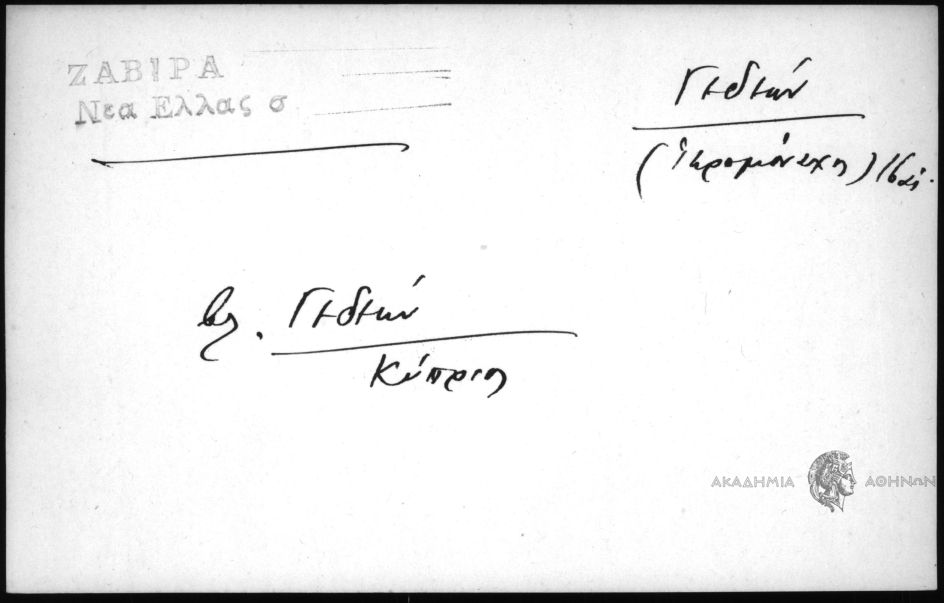 ΖΑΒΙΡΑ
Νεα Ελλας σ
Γεδεών
(Ιερομόναχος)
βλ. Γεδεών
Κύπριος
ΑΚΑΔΗΜΙΑ ΑΘΗΝΩΝ